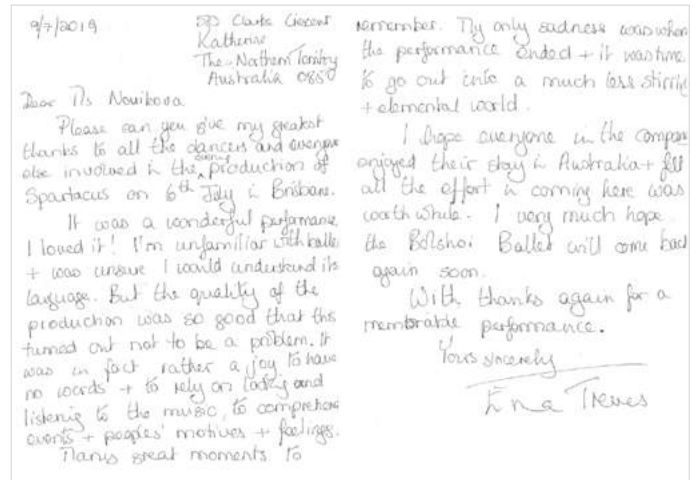 9/7/2019
Clarke Crescent
Katherine
The Northern Territory
Australia 0850
Dear Ms Novikova
Please can you give my greatest
thanks to all the dancers and everyone
else involved in the evening production of
Spartacus on 6th July in Brisbane.
It was a wonderful performance
I loved it! I'm unfamiliar with ballet
+ was unsure I would understand its
language. But the quality of the
production was so good that this
turned out not to be a problem. It
was in fact rather a joy to have
no words + to rely on looking and
listening to the music, to comprehend
events + peoples' motives + feelings.
Many great moments to
remember. My only sadness was when
the performance ended + it was time
to go out into a much less stirring
+ elemental world.
I hope everyone in the company
enjoyed their stay in Australia + felt
all the effort in coming here was
worth while. I very much hope
the Bolshoi Ballet will come back
again soon.
With thanks again for a
memorable performance.
Yours sincerely
Ena Treves